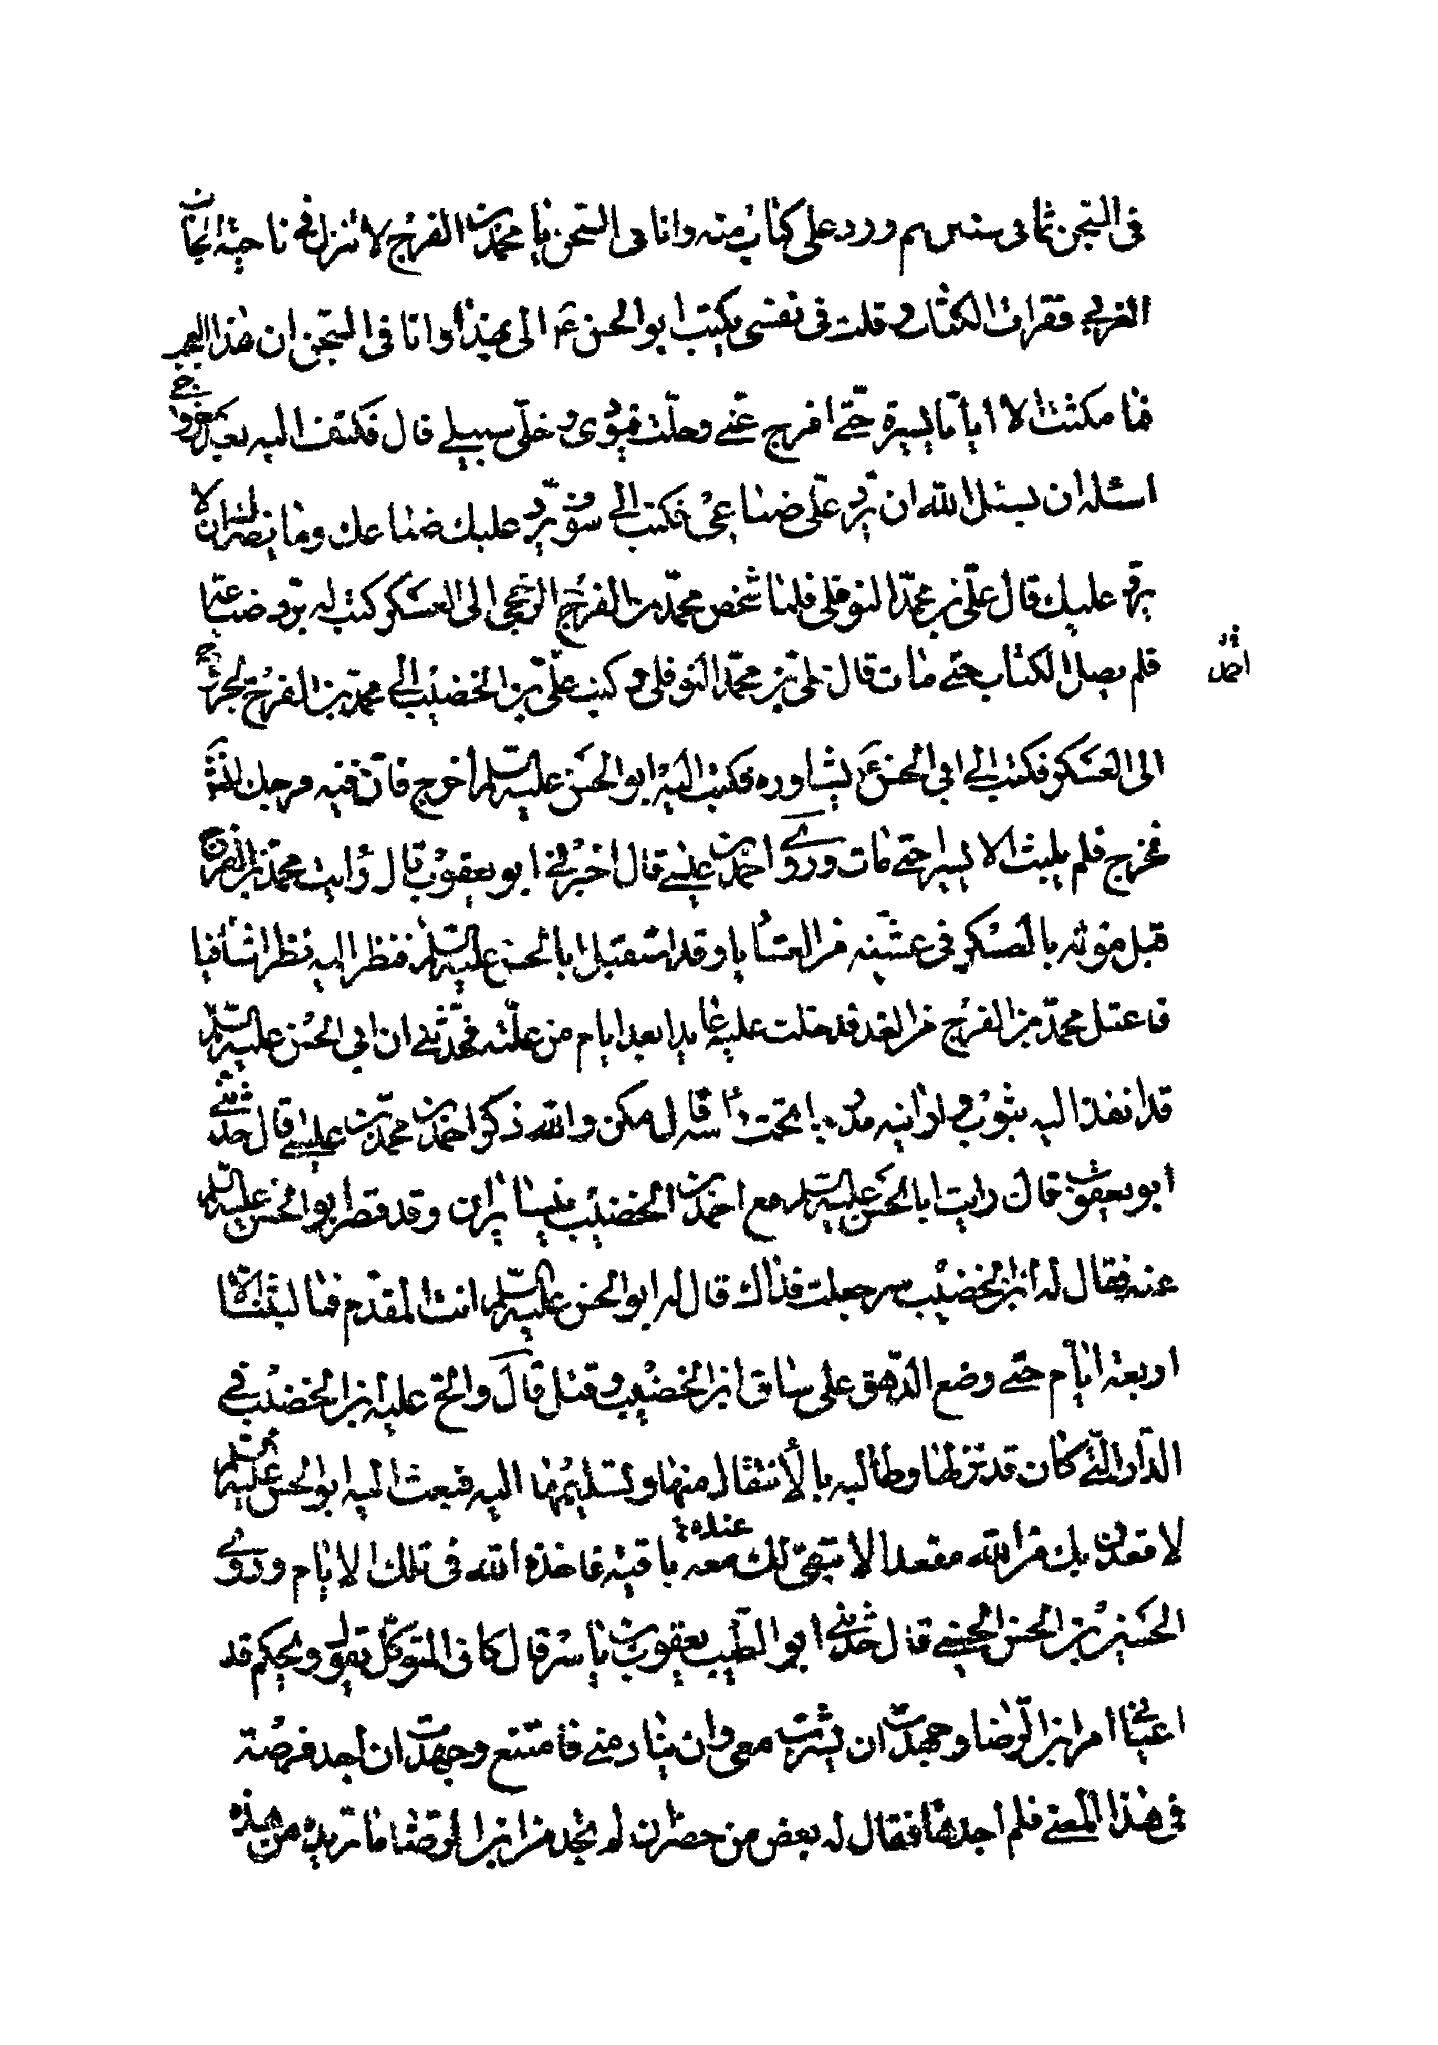 فى السّجن ثمانى سنين ثم ورد على كتاب منه وانا فى السّجن يا محمد بن الفرج لا تنزل فى ناحية الجانب
الغربى فقرات الكتاب وقلت فى نفسى يكتب ابو الحسن ع الى بهذا وانا فى السّجن ان هذا لعجب
فما مكثت الا ايّاما يسيرة حتّى افرج عنّى وحلّت قيودى وخلّى سبيلى قال فكتبت اليه بعد خروجى
اسئله ان يسئل الله ان يردّ علىّ ضياعى فكتب الىّ سوف يردّ عليك ضياعك وما يضرّك ان لا
يردّ عليك قال علىّ بن محمّد النوفلى فلما شخص محمّد بن الفرج الرخجى الى العسكر كتب له بردّ ضياعه
فلم يصل الكتاب حتّى مات قال علىّ بن محمّد النوفلى وكتب علىّ بن الخضيب الى محمّد بن الفرج بالخروج
احمد
الى العسكر فكتب الى ابى الحسن ع يشاوره فكتب اليه ابو الحسن عليه السلم اخرج فان فيه فرجك انشاء
فخرج فلم يلبث الا يسيرا حتّى مات وروى احمد بن عيسى قال اخبرنى ابو يعقوب قال رايت محمّد بن الفرج
قبل موته بالعسكر فى عشيّة من العشايا وقد استقبل ابا الحسن عليه السلم فنظر اليه نظرا شافيا
فاعتل محمّد بن الفرج من الغد فدخلت عليه عايدا بعد ايام من علّته فحدّثنى ان ابى الحسن عليه السلم
قد انفذ اليه بثوب وارانيه مدرجا تحت راسه قال فكفن والله ذكر احمد بن محمّد بن عيسى قال حدّثنى
ابو يعقوب قال رايت ابا الحسن عليه السلم مع احمد بن الخضيب يتسايران وقد قصر ابو الحسن عليه السلم
عنه فقال له ابن الخضيب سر جعلت فداك قال له ابو الحسن عليه السلم انت المقدّم فما لبثنا الا
اربعة ايّام حتّى وضع الدّهق على ساق ابن الخضيب وقتل قال والحّ عليه ابن الخضيب فى
الدّار الّتى كان قد نزلها وطالبه بالانتقال منها وتسليمها اليه فبعث اليه ابو الحسن عليه السلم
لاقعدن بك من الله مقعدا لا يبقى لك معه عنده باقية فاخذه الله فى تلك الايّام وروى
الحسين بن الحسن الحسنى قال حدّثنى ابو الطّيب يعقوب بن ياسر قال كان المتوكّل يقول ويحكم قد
اعيانى امر ابن الرّضا وجهدت ان يشرب معى وان ينادمنى فامتنع وجهدت ان اجد فرصة
فى هذا المعنى فلم اجدها فقال له بعض من حضران لم تجد من ابن الرّضا ما تريده من هذه